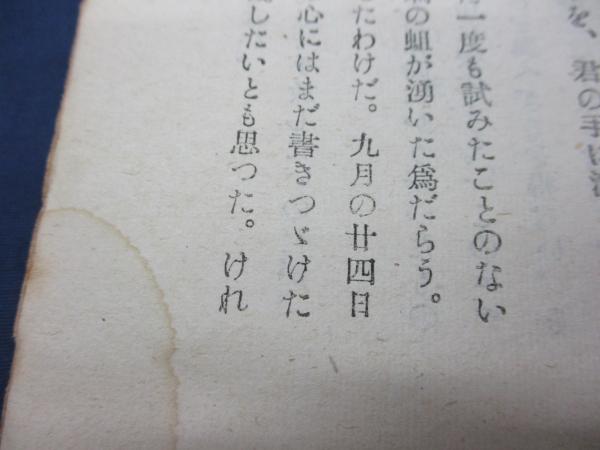 を、君の手に
一度も試みたことのない
の蛆が湧いた爲だらう。
したわけだ。九月の廿四日
心にはまだ書きつゞけた
したいとも思つた。けれ